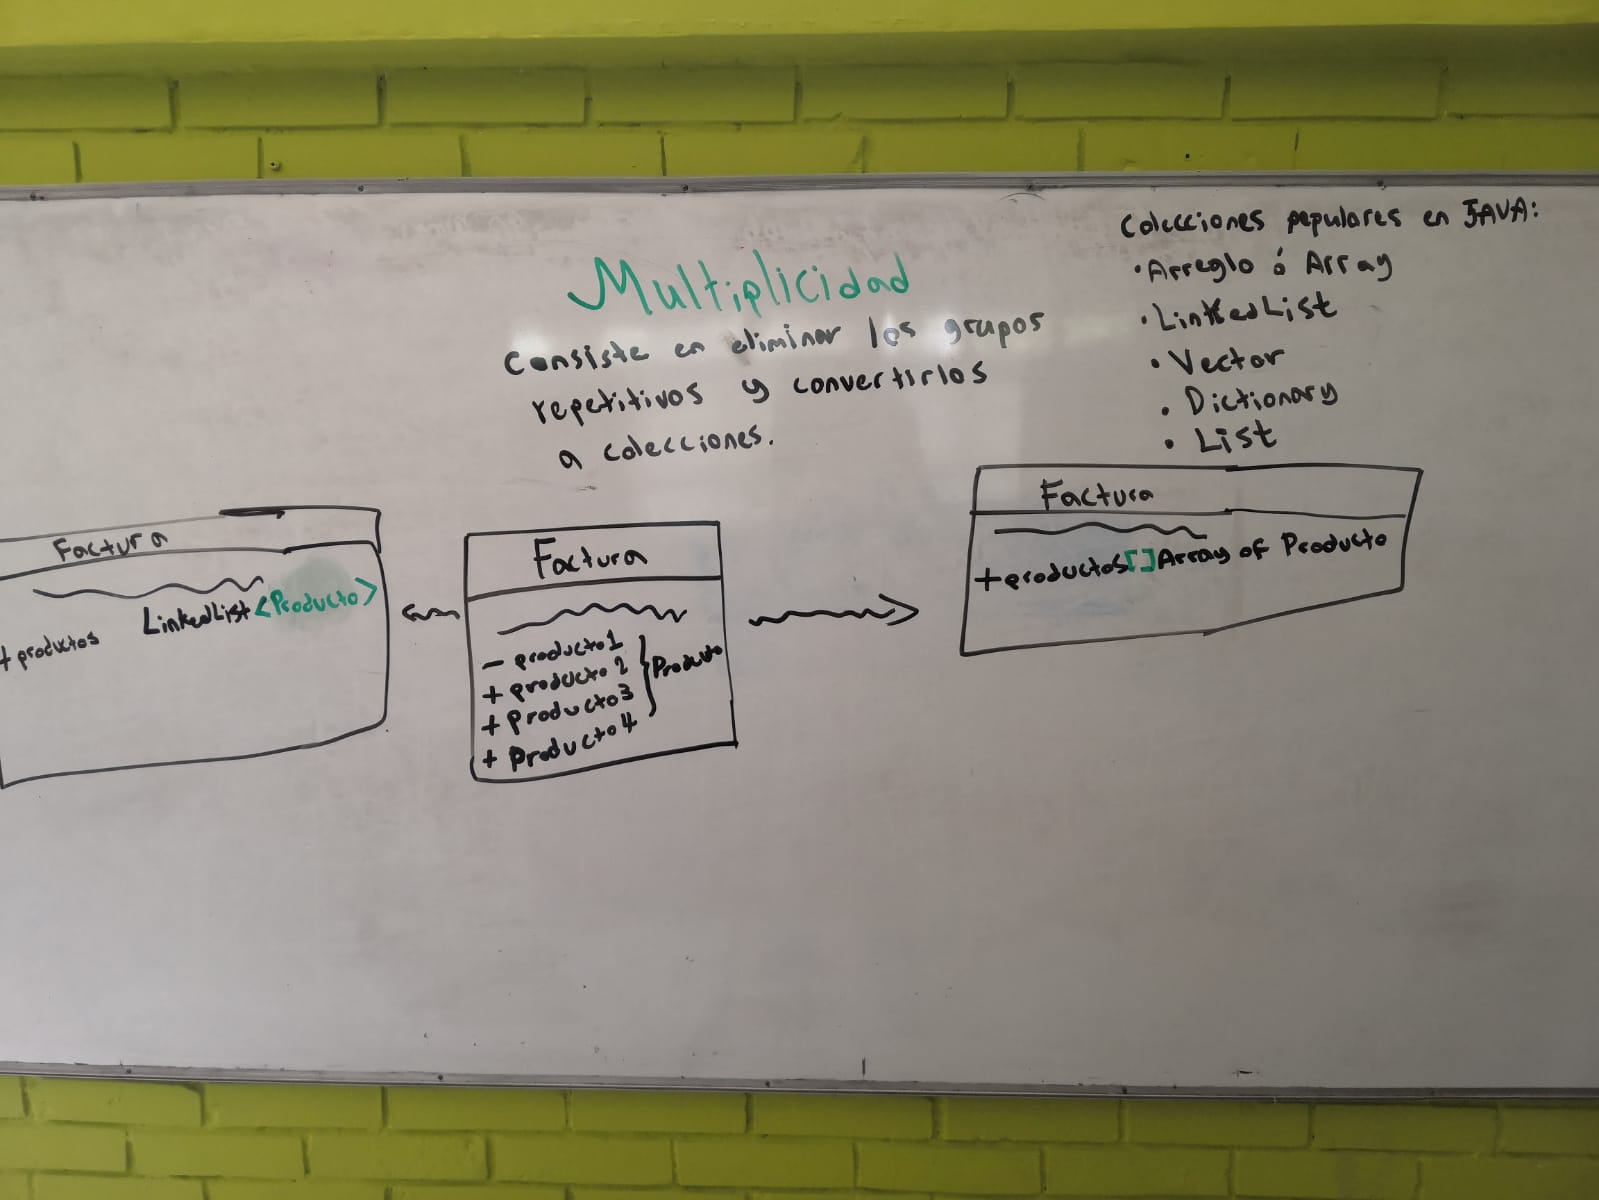 Multiplicidad
Consiste en eliminar los grupos
repetitivos y convertirlos
a colecciones.
Colecciones populares en JAVA:
• Arreglo ó Array
• LinkedList
• Vector
• Dictionary
• List
Factura
LinkedList<Producto>
+ productos
Factura
- producto1
+ producto 2
+ producto3
+ Producto4
} Producto
Factura
+productos[]Array of Producto